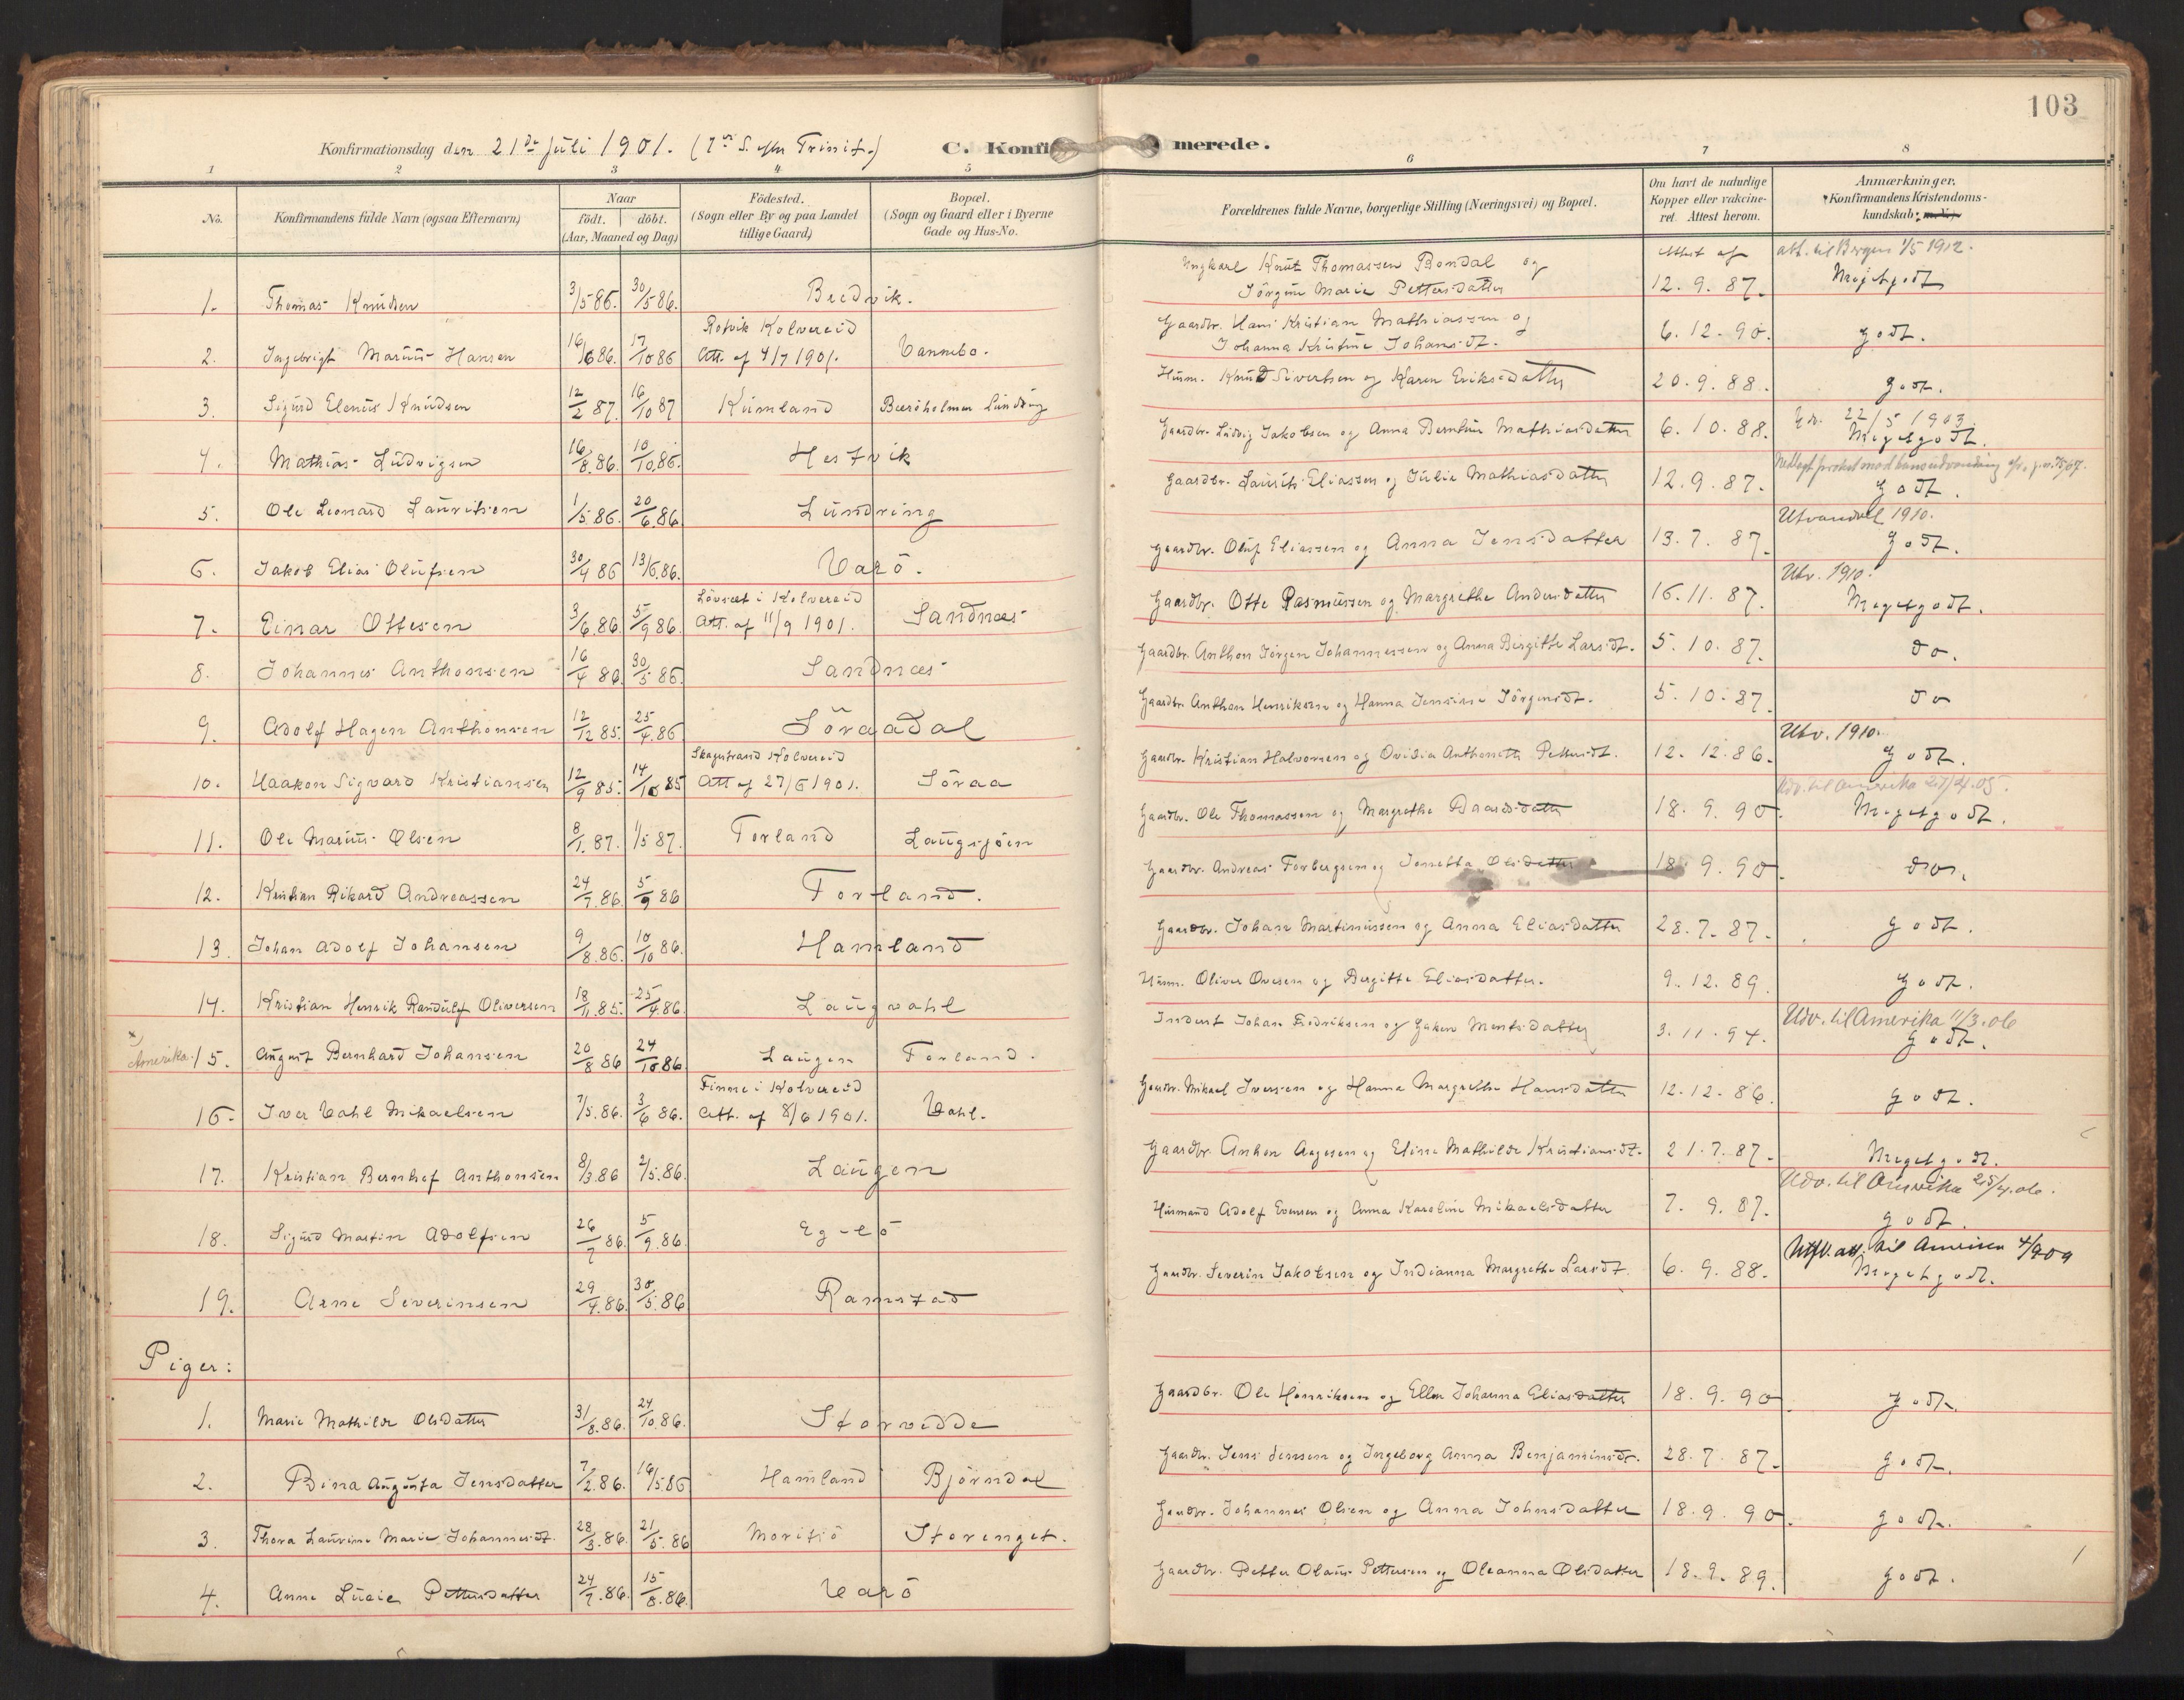 103
Konfirmationsdag den 21de Juli 1901. (7de S. efter Trinit.) C. Konfirmerede.
1 2 3 4 5 6 7 8
No. Konfirmandens fulde Navn (ogsaa Efternavn) Naar födt. döbt. (Aar, Maaned og Dag) Födested. (Sogn eller By og paa Landet tillige Gaard) Bopæl. (Sogn og Gaard eller i Byerne Gade og Hus-No. Forældrenes fulde Navne, borgerlige Stilling (Næringsvei) og Bopæl. Om havt de naturlige Kopper eller vakcineret. Attest herom. Anmærkninger. Konfirmandens Kristendomskundskab: m.V.
1. Thomas Knudsen 3/5 86. 30/5 86. Bredvik. Ungkarl Knut Thomassen Bondal og Jörgine Marie Pettersdatter Attest af 12.9.87. att. til Bergen 1/5 1912. Megetgodt
2. Ingebrigt Marius Hansen 16/6 86. 17/10 86 Rotvik Kolvereid Att. af 4/7 1901. Vannebo. Gaardbr. Hans Kristian Mathiassen og Johanna Kristine Johansdt. 6.12.90. godt.
3. Sigurd Elenus Knudsen 12/2 87. 16/10 87 Kumland Lundring Husm. Knud Sivertsen og Karen Eriksdatter 20.9.88. godt.
4. Mathias Ludvigsen 16/8.86. 10/10.86. Hestvik Gaardbr. Ludvig Jakobsen og Anna Berntine Mathiasdatter 6.10.88. 22/5 1903. Megetgodt.
5. Ole Leonard Lauritsen 1/5.86. 20/6.86 Lundring Gaardbr. Laurits Eliassen og Julie Mathiasdatter 12.9.87. godt.
6. Jakob Elias Olufsen 30/4 86 13/6.86. Varö. Gaardbr. Oluf Eliassen og Anna Jensdatter 13.7.87. Utvandret 1910. godt.
7. Einar Ottesen 3/6.86. 5/9 86 Lövset i Kolvereid Att. af 11/9 1901. Sandnæs Gaardbr. Otte Rasmussen og Margrethe Andersdatter 16.11.87. Utv. 1910. Megetgodt.
8. Johannes Anthonsen 16/4 86. 30/5 86. Sandnæs Gaardbr. Anthon Jörgen Johannessen og Anna Birgitte Larsdt. 5.10.87. do.
9. Adolf Hagen Anthonsen 12/12 85. 25/4.86 Söraadal Gaardbr. Anthon Henriksen og Hanna Jensine Jörgensdt. 5.10.87 do
10. Haakon Sigvard Kristiansen 12/9 85. 14/10 85 Skagstrand Kolvereid Att af 27/6 1901. Söraa Gaardbr. Kristian Halvorsen og Ovidia Anthonette Pettersdt. 12.12.86. Utv. 1910. godt.
11. Ole Marius Olsen 8/1.87. 1/5 87. Forland Laugsjöen Gaardbr. Ole Thomassen og Margrethe Baardsdatter 18.9.90. Udv. til Amerika 27/4.05. Megetgodt.
12. Kristian Rikard Andreassen 24/7.86. 5/9 86 Forland. Gaardbr. Andreas Torbergsen og Jonetta Olsdatter 18.9.90. do.
13. Johan Adolf Johansen 9/8.86. 10/10 86. Hamland Gaardbr. Johan Martinussen og Anna Eliasdatter 28.7.87. godt.
14. Kristian Henrik Randulf Oliversen 18/11.85. 25/4.86. Laugvahl Husm. Oliver Ovesen og Bergitte Eliasdatter. 9.12.89. godt.
x) Amerika. 15. August Bernhard Johansen 20/8 86 24/10 86. Laugen Forland. Inderst Johan Fredriksen og Mentsdatter 3.11.94. Udv. til Amerika 11/3.06 godt.
16. Iver Vahl Mikaelsen 7/5.86. 3/6 86. Finne i Kolvereid Att. af 8/6 1901. Vahl. Gaardbr. Mikael Iversen og Hanna Margrethe Hansdatter 12.12.86. godt.
17. Kristian Bernhof Anthonsen 8/3.86 2/5.86. Laugen Gaardbr. Anton Aagesen og Eline Mathilde Kristiansdt. 21.7.87. Megetgodt.
18. Sigurd Martin Adolfsen 26/7 86 5/9.86. Eg-lö Husmand Adolf Evensen og Anna Karoline Mikaelsdatter 7.9.87. Udv. til Amerika 25/4.06. godt.
19. Arne Severinsen 29/4.86. 30/5.86 Ramstad Gaardbr. Severin Jakobsen og Indianna Margrethe Larsdt. 6.9.88. att. til Amerika 4/9 09 Megetgodt.
Piger:
1. Marie Mathilde Olsdatter 31/8.86. 24/10.86. Storvedde Gaardbr. Ole Henriksen og Ellen Johanna Eliasdatter 18.9.90. godt.
2. Bina Augusta Jensdatter 7/2.86. 16/5 86 Hamland Björndal Gaardbr. Jens Jensen og Ingeborg Anna Benjaminsdt. 28.7.87. godt.
3. Thora Laurine Marie Johannesdt. 28/3.86. 21/5.86 Moritsö Storenget. Gaardbr. Johannes Olsen og Anna Johnsdatter 18.9.90. godt.
4. Anna Lucie Pettersdatter 24/7.86. 15/8.86. Varö Gaardbr. Petter Olaus Pettersen og Oleanna Olsdatter 18.9.89. godt.